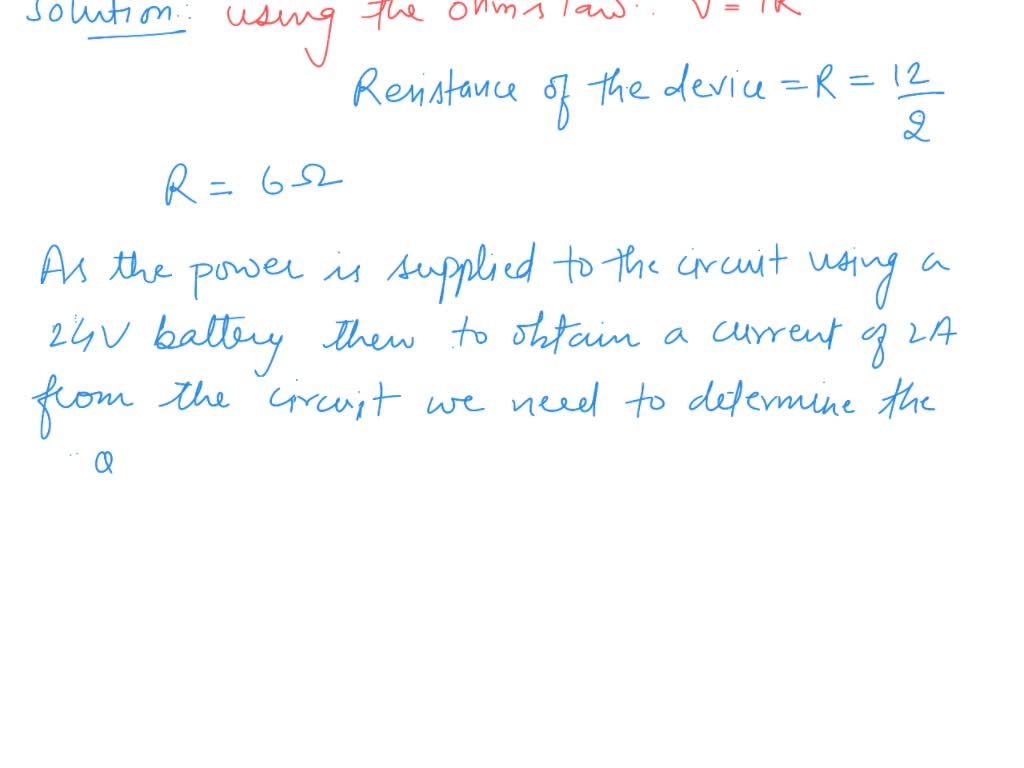 Solution: using the ohms law: V = IR
Resistance of the device = R = 12/2
R = 6Ω
As the power is supplied to the circuit using a
24V battery then to obtain a current of 2A
from the circuit we need to determine the
a